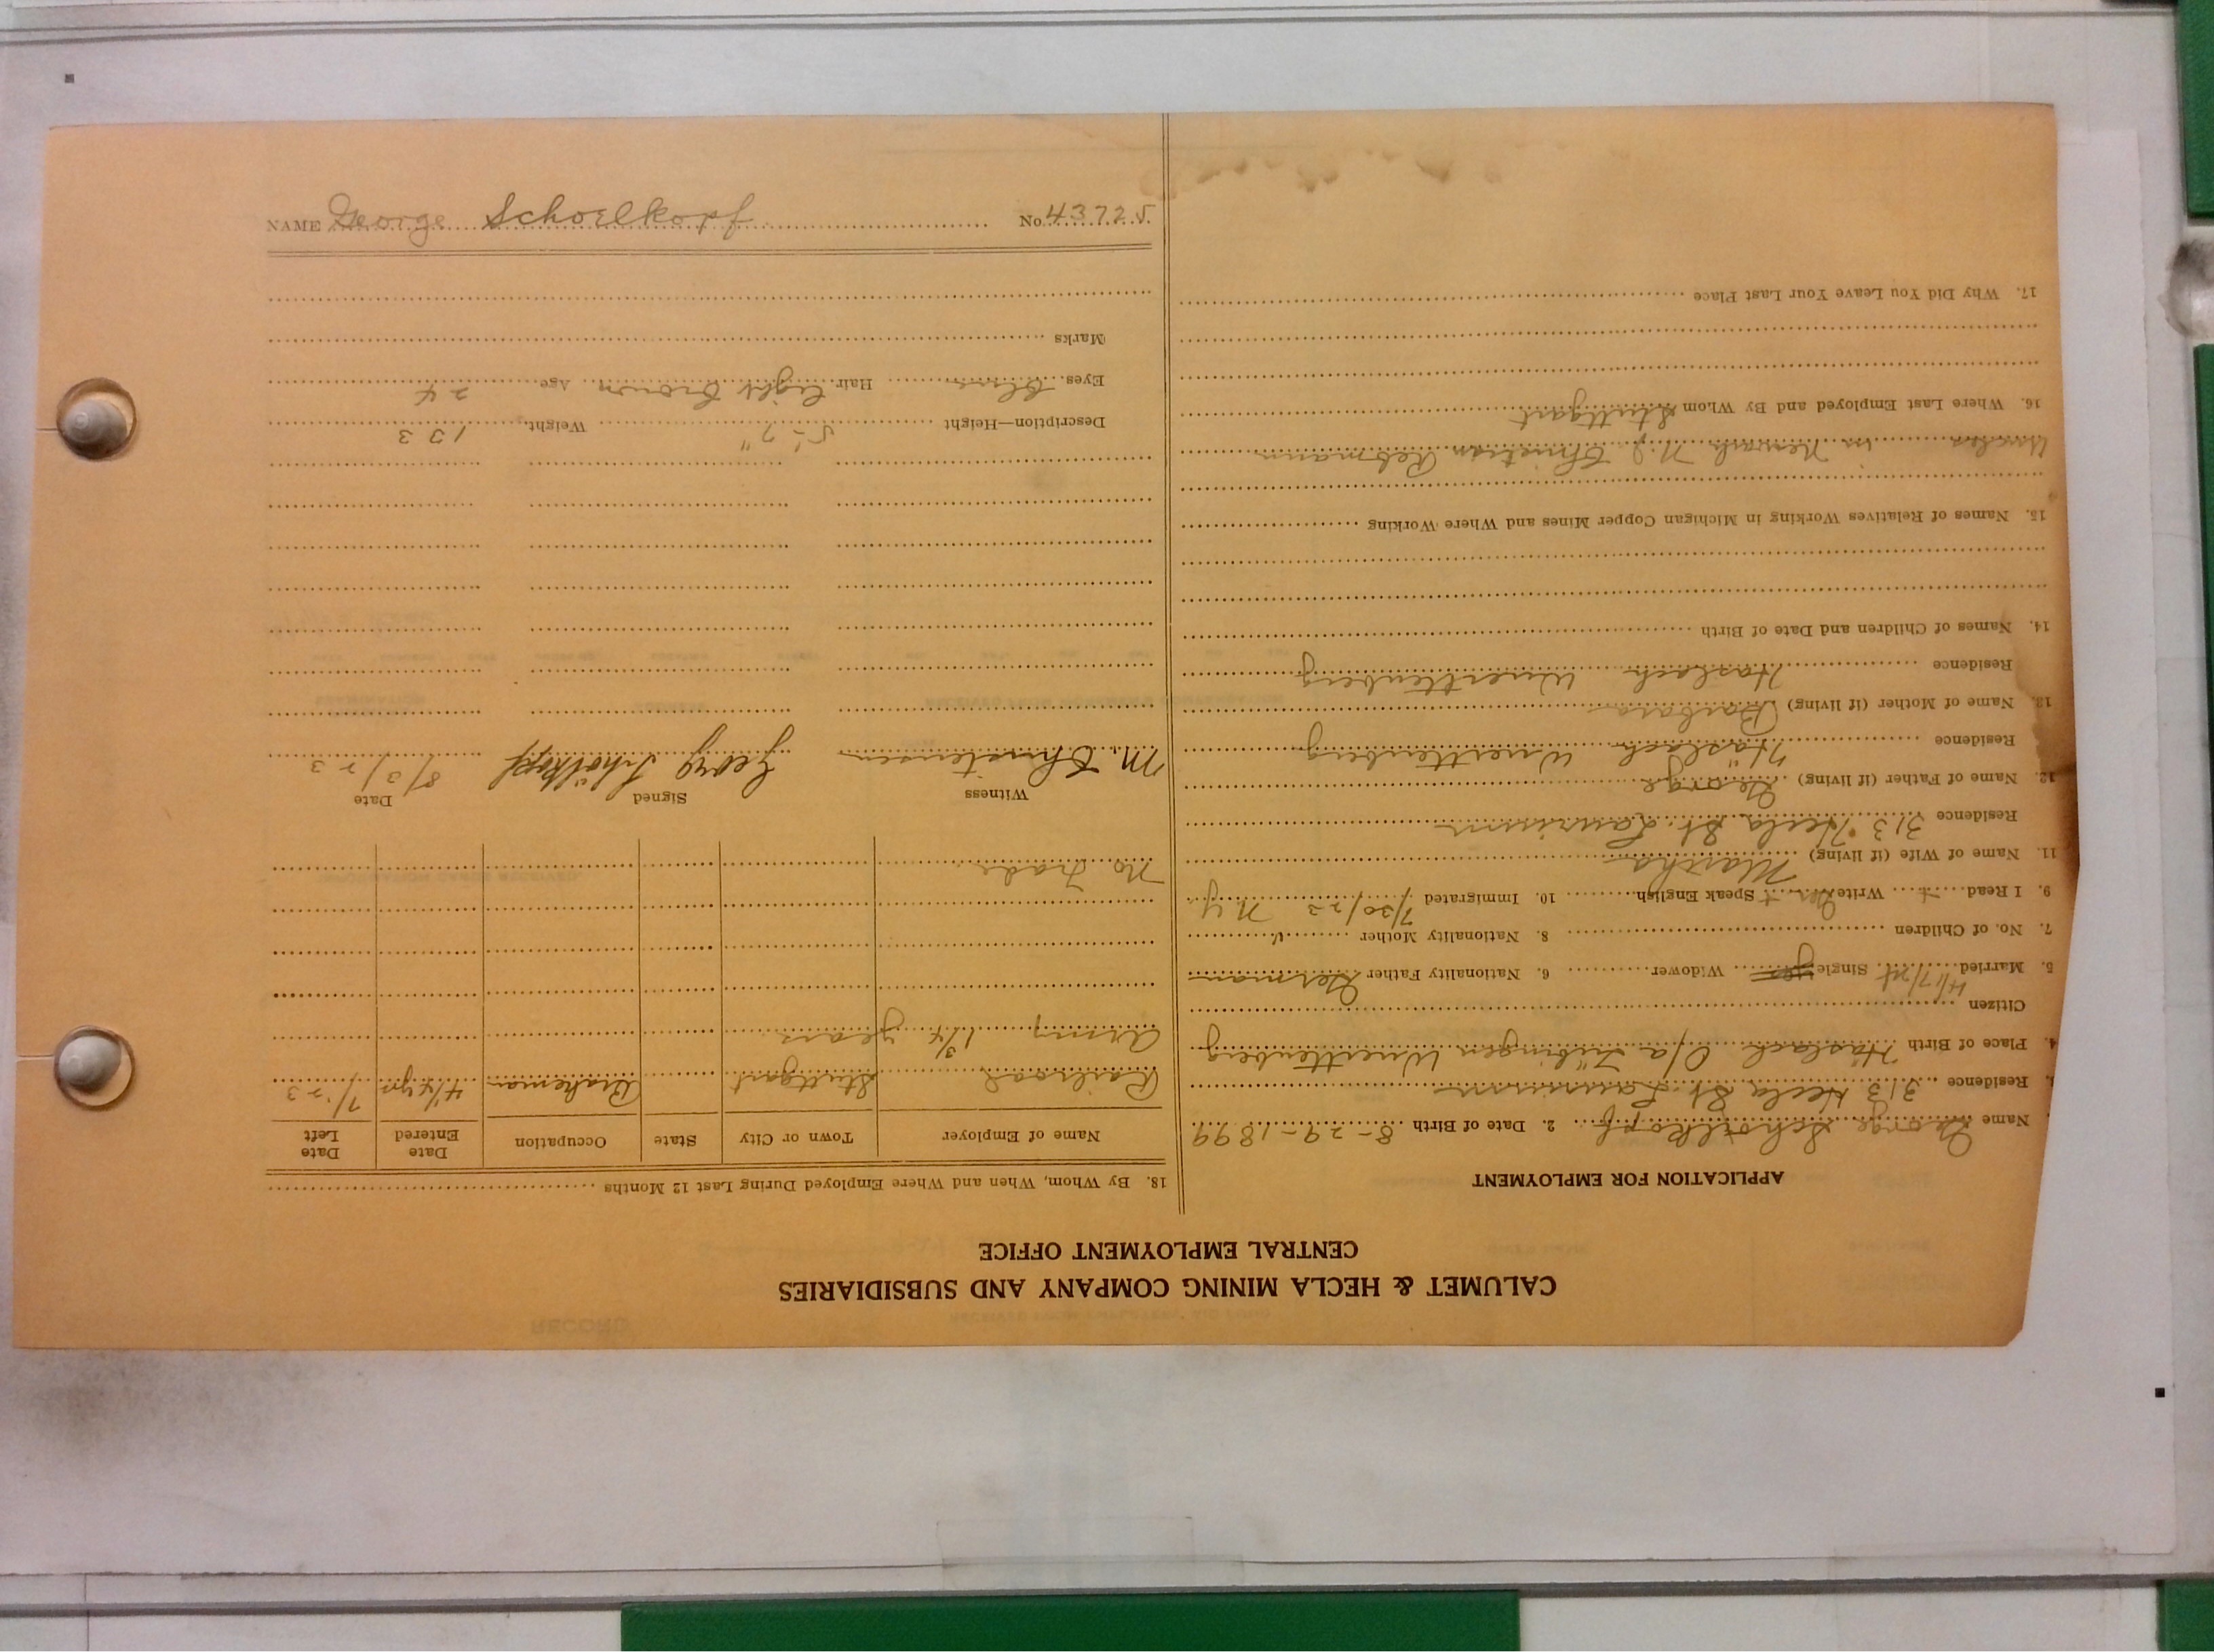 CALUMET & HECLA MINING COMPANY AND SUBSIDIARIES
CENTRAL EMPLOYMENT OFFICE
APPLICATION FOR EMPLOYMENT
Name George Schoelkopf 2. Date of Birth 8-29-1899
3. Residence 313 Hecla St. Laurium
4. Place of Birth Häslach O/a Tübingen Wuerttenberg
Citizen
5. Married 4/17/24 Single yes Widower 6. Nationality Father German
7. No. of Children 8. Nationality Mother "
9. I Read + Write Ger + Speak English 10. Immigrated 7/30/23 N.Y
11. Name of Wife (if living) Martha
Residence 313 Hecla St. Laurium
12. Name of Father (if living) George
Residence Häslach Wuerttenberg
13. Name of Mother (if living) Barbara
Residence Haslach Wuerttenberg
14. Names of Children and Date of Birth
15. Names of Relatives Working in Michigan Copper Mines and Where Working
in Newark N.J. Christian Rebmann
16. Where Last Employed and By Whom Stuttgart
17. Why Did You Leave Your Last Place
18. By Whom, When and Where Employed During Last 12 Months
Name of Employer Town or City State Occupation Date Entered Date Left
Railroad Stuttgart Brakeman 4 1/4 yrs 7/23
Army 1 3/4 years
No Trade
Witness Signed Date
M. Christensen Georg Schölkopf 8/3/23
Description—Height 5-7" Weight 133
Eyes Blue Hair light brown Age 24
Marks
NAME George Schoelkopf No. 43725